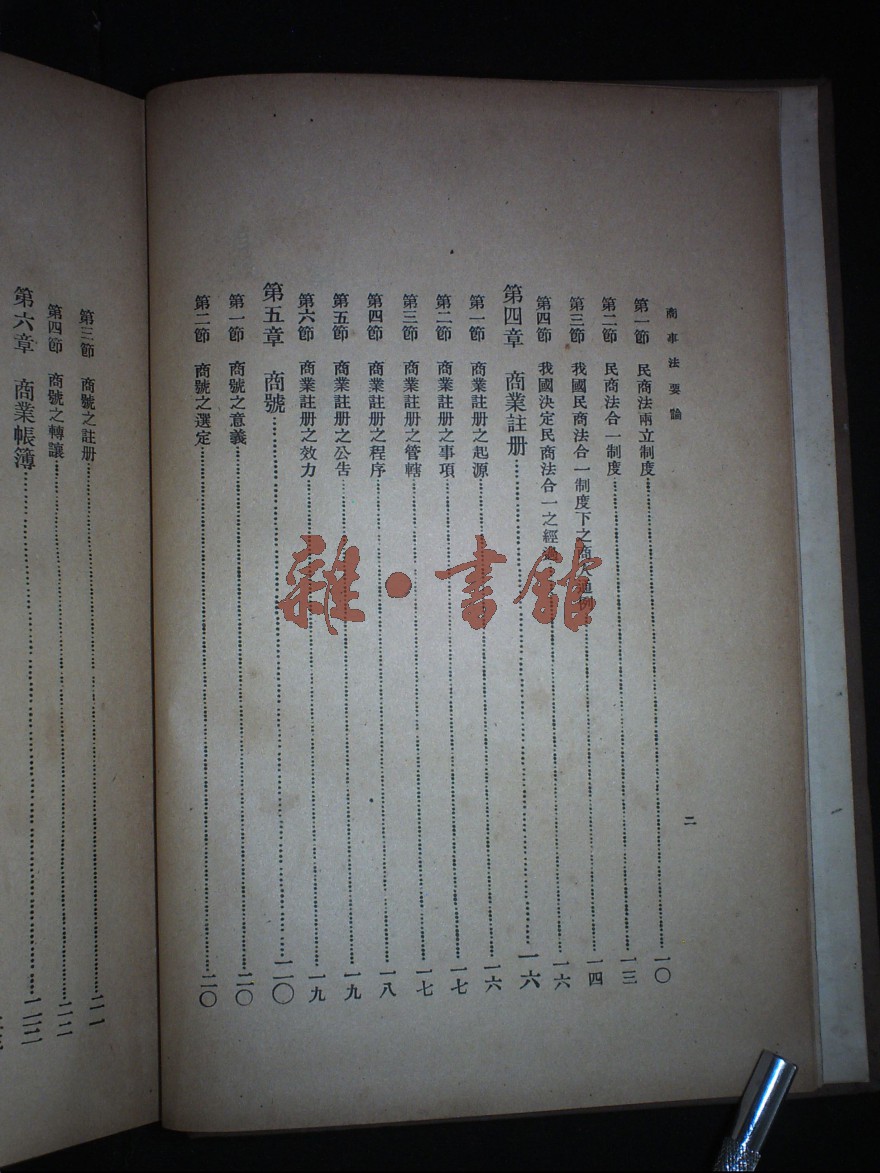 商事法要論
二
第一節 民商法兩立制度 一〇
第二節 民商法合一制度 一三
第三節 我國民商法合一制度下之商人通例 一四
第四節 我國決定民商法合一之經過 一六
第四章 商業註册 一六
第一節 商業註册之起源 一六
第二節 商業註册之事項 一七
第三節 商業註册之管轄 一七
第四節 商業註册之程序 一八
第五節 商業註册之公告 一九
第六節 商業註册之效力 一九
第五章 商號 二〇
第一節 商號之意義 二〇
第二節 商號之選定 二〇
第三節 商號之註册 二一
第四節 商號之轉讓 二二
第六章 商業帳簿
雜·書館